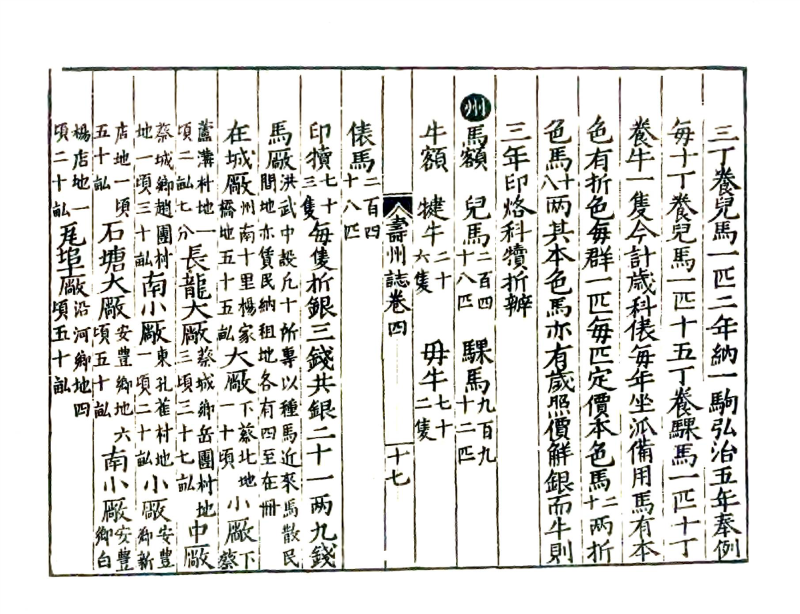 三丁養兒馬一匹二年納一駒弘治五年奉例
每十丁養兒馬一匹十五丁養騍馬一匹十丁
養牛一隻今計歲科俵每年坐派備用馬有本
色有折色每群一匹每匹定價本色馬十二兩折
色馬十八兩其本色馬亦有歲照價解銀而牛則
三年印烙科犢折辦
州 馬額 兒馬二百四十八匹 騍馬九百九十二匹
牛額 犍牛二十六隻 毋牛七十二隻
壽州誌卷四 十七
俵馬二百四十八匹
印犢七十三隻每隻折銀三錢共銀二十一兩九錢
馬廠洪武中設凡十所專以種馬近來馬散民間地亦賃民納租地各有四至在冊
在城廠州南十里楊家橋地五十五畝大廠下蔡北地一十頃小廠下蔡
蘆溝村地一頃二畝七分長龍大廠蔡城鄉岳團村地三頃三十七畝中廠
蔡城鄉趙團村地一頃三十畝南小廠東孔雀村地一頃二十畝小廠安豐鄉新
店地一頃五十畝石塘大廠安豐鄉地六頃五十畝南小廠安豐鄉白
楊店地一頃二十畝瓦埠廠沿河鄉地四頃五十畝